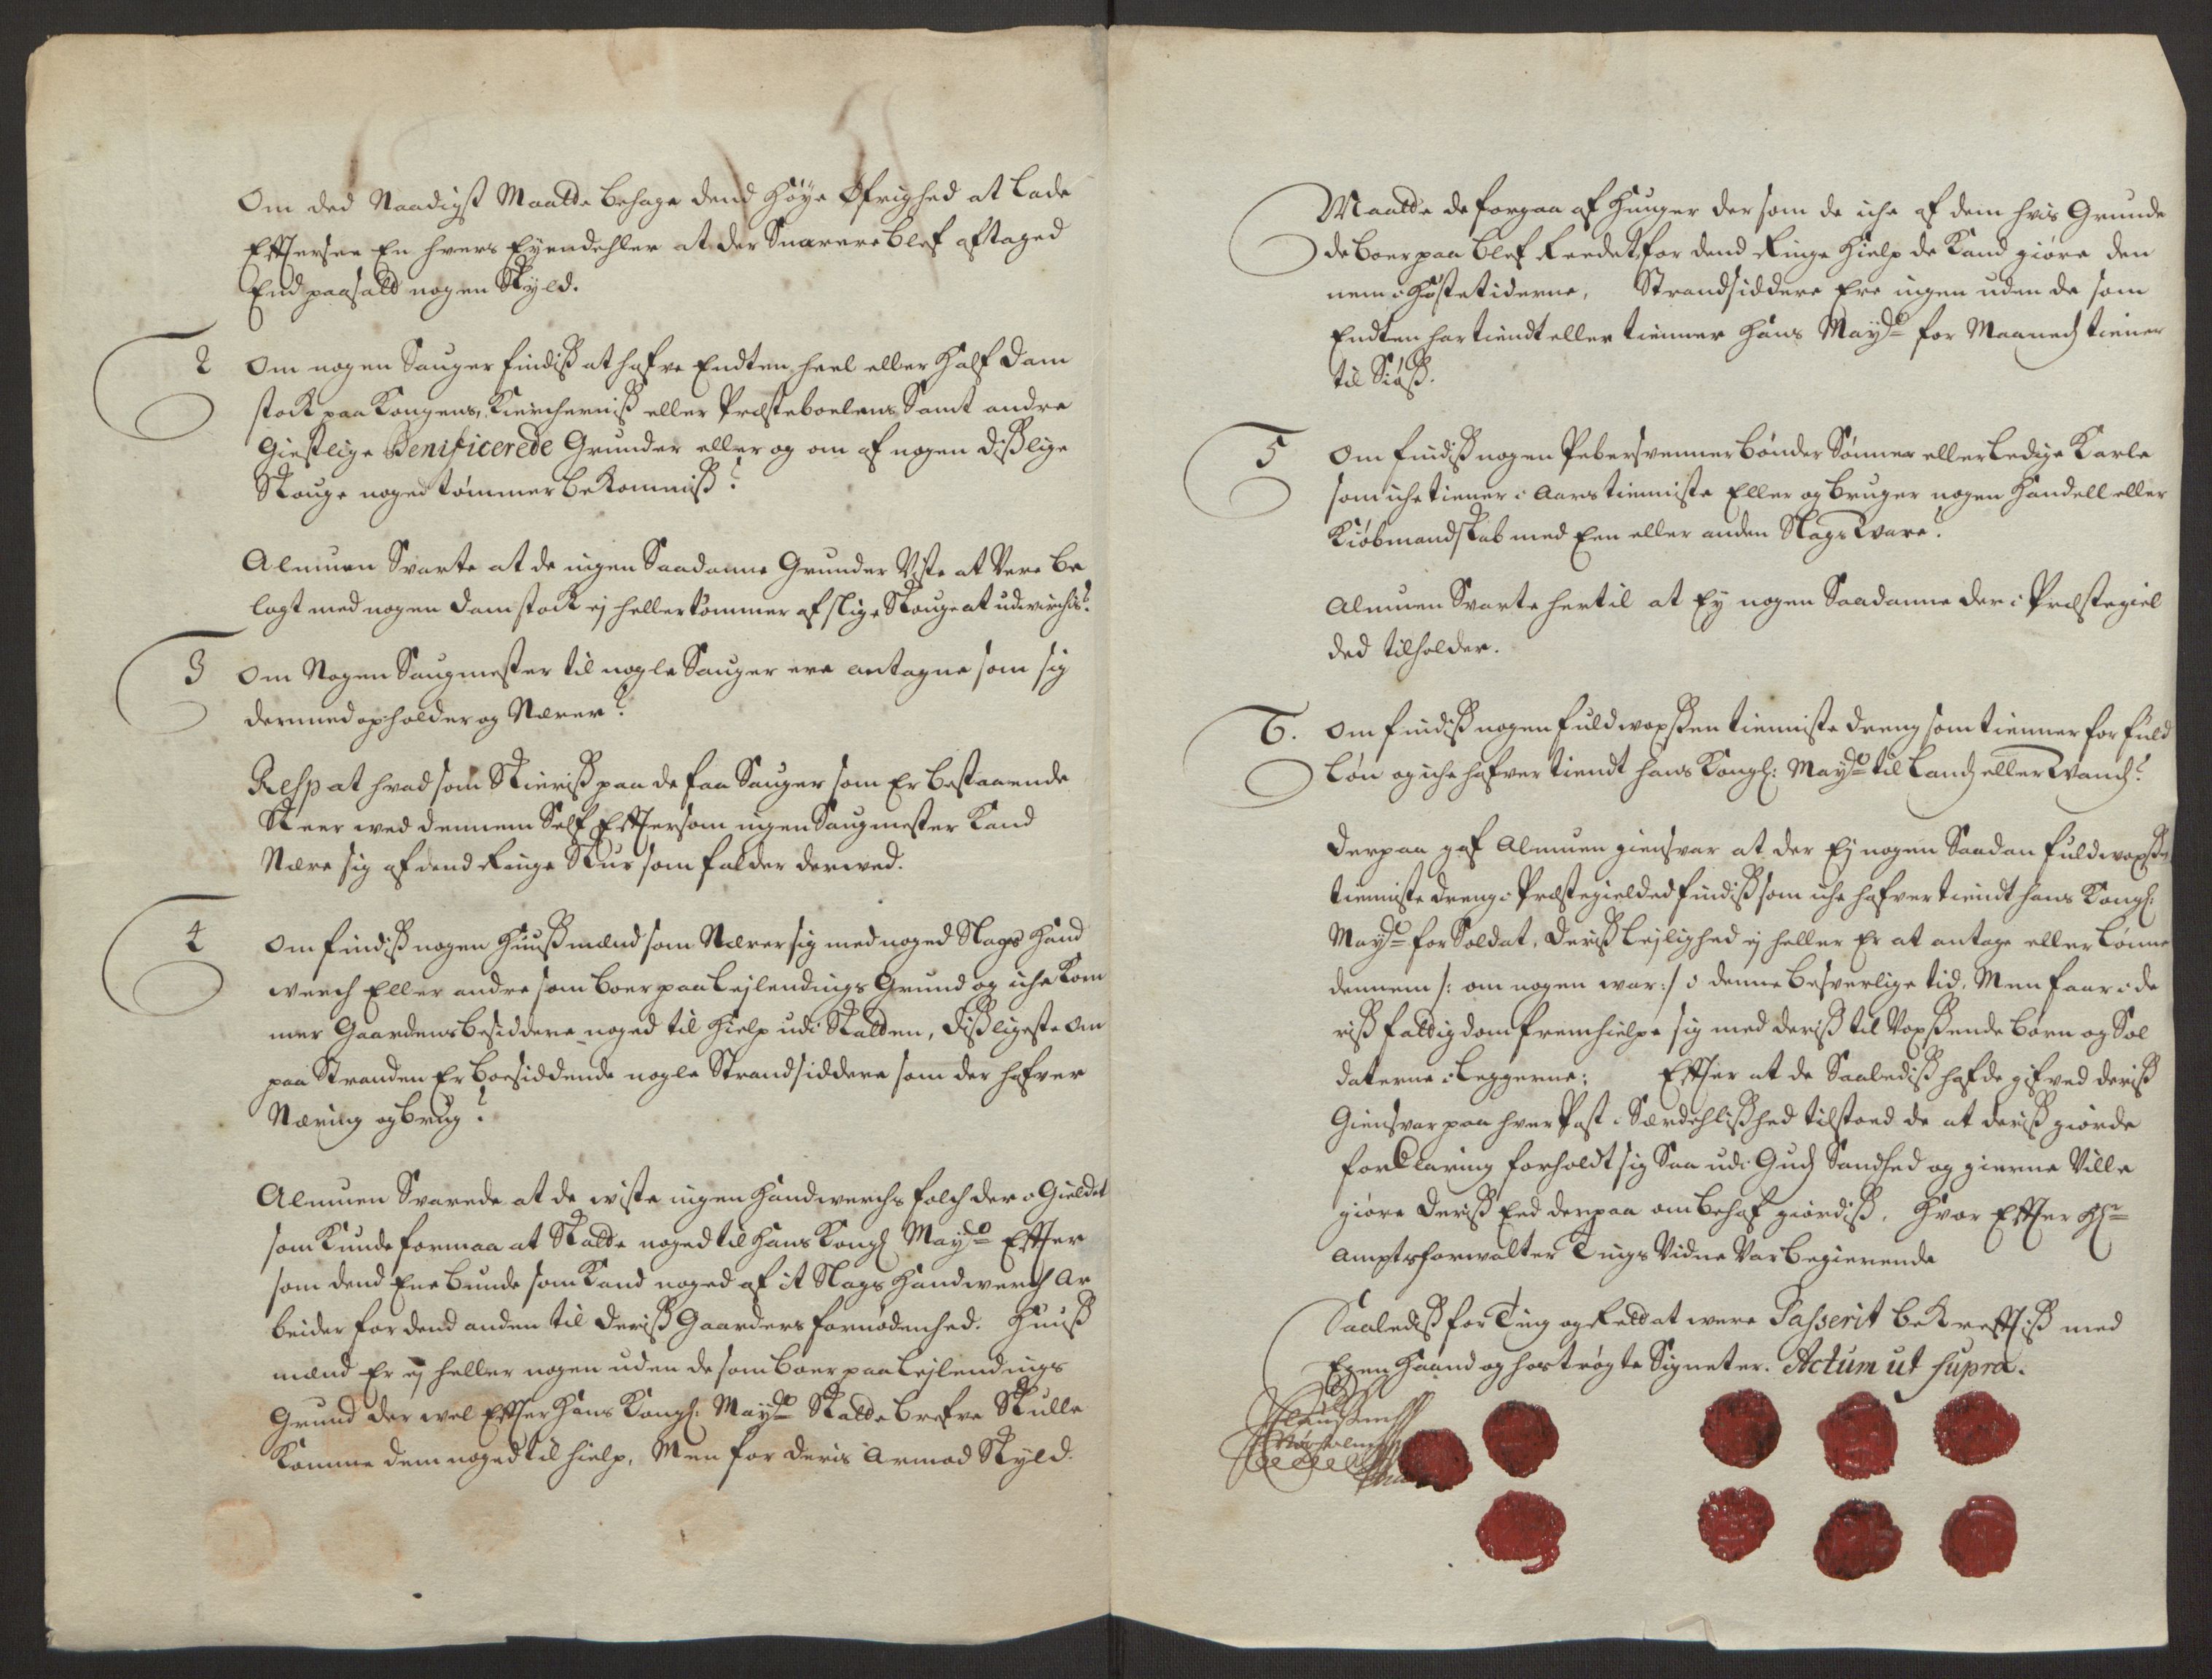 Om ded Naadigst Maatte behage dend Høye Øfrighed at lade
Efftersee En hvers Eyendehler at der Snarere blef aftaged
End paasatt nogen Skyld.
2 Om nogen Sauger findiß at hafve Endten heel eller Half dam
stock paa Kongens, Kiercherniß eller Præsteboelens Samt andre
Giestlige Benificerede Grunder eller og om af nogen dißlige
Skouge noged tømmer bekommiß?
Almuen Svarte at de ingen Saadanne Grunder Viste at Vere be
lagt med nogen damstock ej heller tømmer af slige Skouge at udvirchis.
3 Om Nogen Saugmester til nogle Sauger ere antagne som sig
dermed opholder og Nærer?
Resp at hvad som Skieriß paa de faa Sauger som Er bestaaende
Skeer ved dennem Self Efftersom ingen Saugmester Kand
Nære sig af dend Ringe Skur som falder derved.
4 Om findiß nogen Huußmænd som Nærer sig med noged Slags Hand
verch Eller andre som boer paa Lejlendings Grund og iche Kom
mer Gaardens besiddere noged til Hielp udi Skatten, dißligeste Om
paa Stranden Er boesiddende nogle Strandsiddere som der hafver
Næring og brug?
Almuen Svarede at de viste ingen Handverchs folch der i Gieldet
som Kunde formaa at Skatte noged til Hans Kongl Mayt Effter
som dend Ene bunde som Kand noged af it Slags Handverch Ar
beider for dend anden til deriß Gaarders fornødenhed. Huuß
mænd Er ej heller nogen uden de som boer paa Lejlendings
Grund der vel Effter Hans Kongl: Mayts Skatte brefve Skulle
Komme dem noged til hielp, Men for deris Armod Skyld
Maatte de forgaa af Hunger dersom de iche af dem hvis Grunde
de boer paa blef Reedet, for dend Ringe Hielp de Kand giøre den
nem i Høstetiderne, Strandsiddere Ere ingen uden de som
Endten har tiendt eller tienner Hans Mayt for Maaneds tiener
til Siøß.
5 Om findiß nogen Pebersvenner bønder Sønner eller ledige Karle
som iche tiener i Aars tienniste Eller og bruger nogen Handell eller
Kiøbmandskab med Een eller anden Slags Vare?
Almuen Svarte hertil at Ey nogen Saadanne der i Præstegiel
ded tilholder.
6. Om findiß nogen fuldvoxsen tienniste dreng som tienner for fuld
Løn og iche hafver tiendt hans Kongl: Mayt til Lands eller Vands?
derpaa gaf Almuen giensvar at der Ej nogen Saadan fuldvoxsen
tienniste dreng i Præstegieldet findiß som iche hafver tiendt hans Kongl:
Mayt for Soldat, deriß Lejlighed ej heller Er at antage eller Lønne
dennem /: om nogen var :/ i denne besverlige tid, Men faar i de
riß fattigdom fremhielpe sig med deriß til Voxsende børn og Sol
daterne i Leggerne; Effter at de Saaledis hafde gifved deriß
Giensvar paa hver Post i Særdehlißhed tilstoed de at deriß giorde
forklaring forholdt sig Saa udi Guds Sandhed og gierne Ville
giøre deriß Eed derpaa om behof giordiß, Hvor Effter Hr
Amptsforwalter Tings Vidne Var begierende
Saalediß for Ting og Rett at were Passerit bekreffts iß med
Egen Haand og hostrøgte Signeter. Actum ut supra.